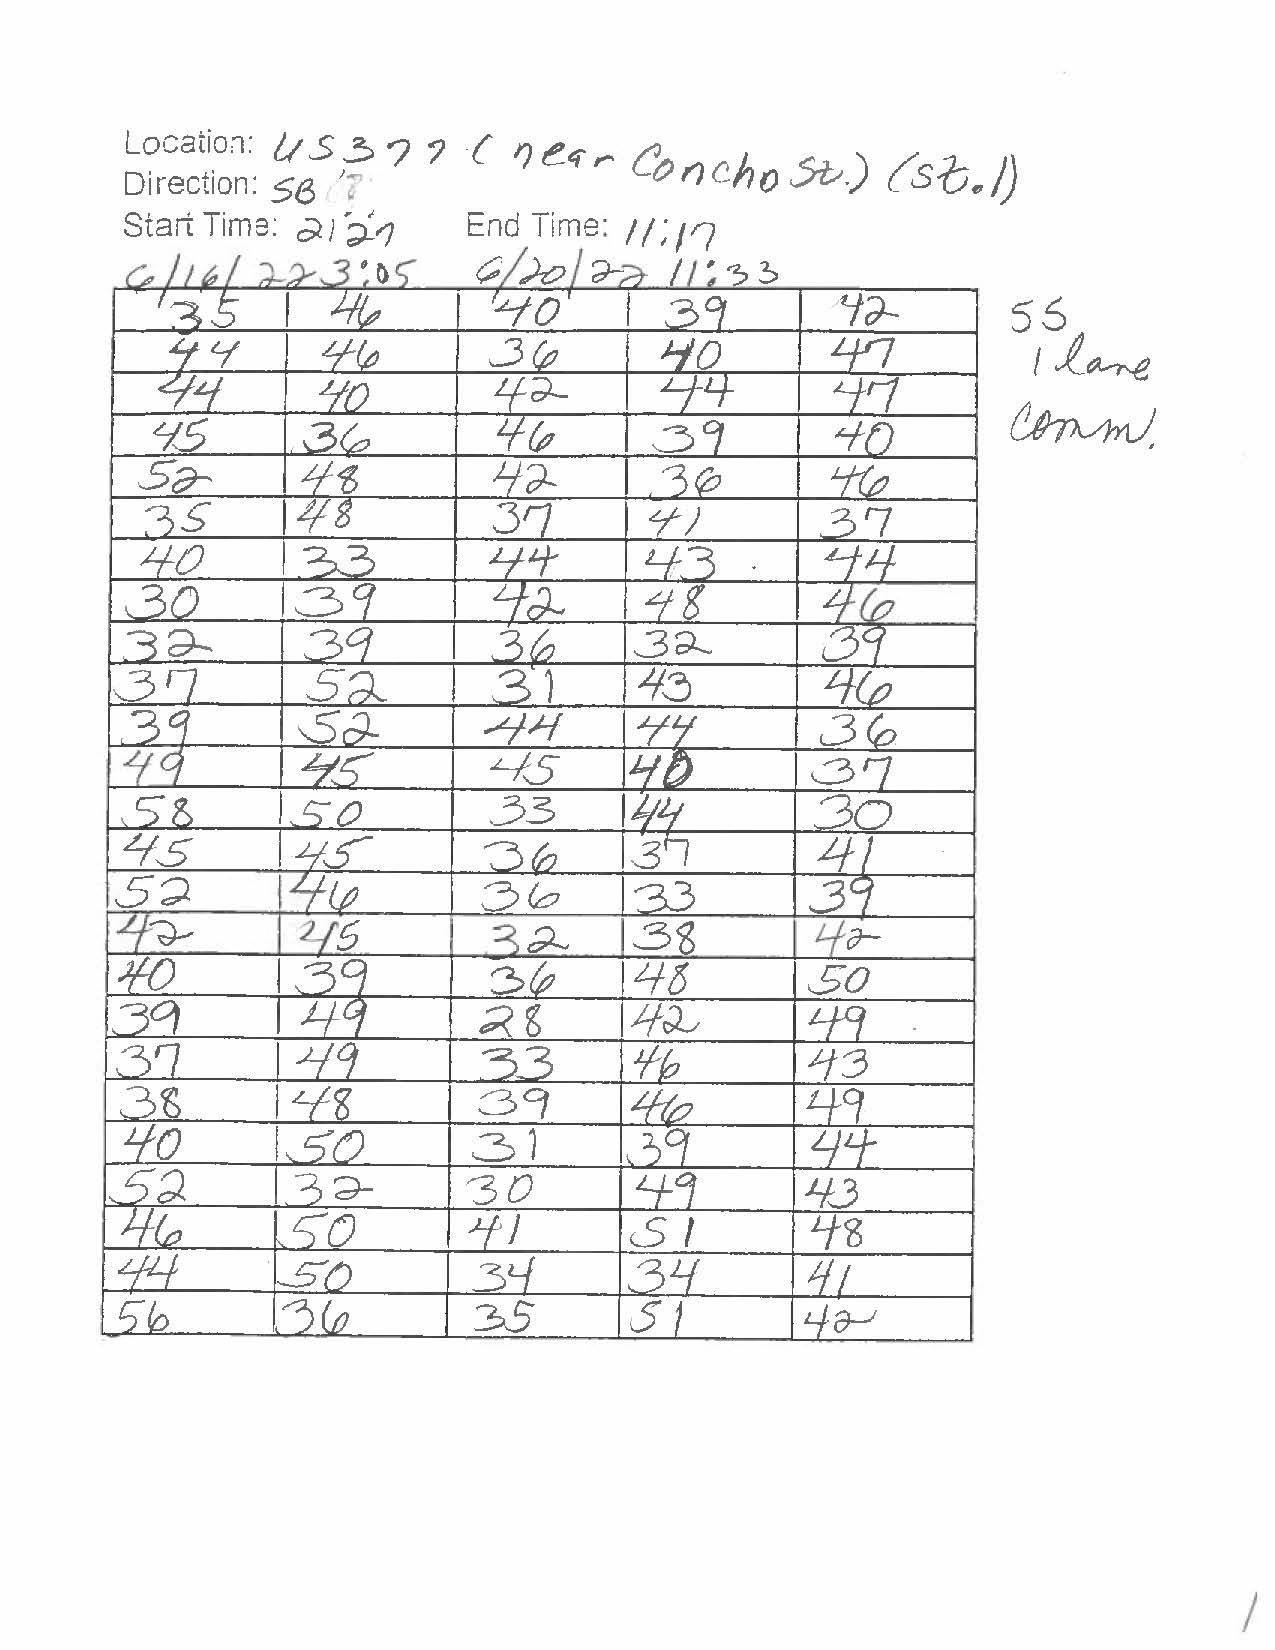 Location: US377 (near Concho St.) (st.1)
Direction: SB
Start Time: 2:27 End Time: 11:17
6/16/22 3:05 6/20/22 11:33
35 46 40 39 42 55
44 46 36 40 47 1 lane
44 40 42 44 47
45 36 46 39 40 comm.
52 48 42 36 46
35 48 37 41 37
40 33 44 43 44
30 39 42 48 46
32 39 36 32 39
37 52 31 43 46
39 52 44 44 36
49 45 45 40 37
58 50 33 44 30
45 45 36 37 41
52 46 36 33 39
42 45 32 38 42
40 39 36 48 50
39 49 28 42 49
37 49 33 46 43
38 48 39 46 49
40 50 31 39 44
52 32 30 49 43
46 50 41 51 48
44 50 34 34 41
56 36 35 51 42
1